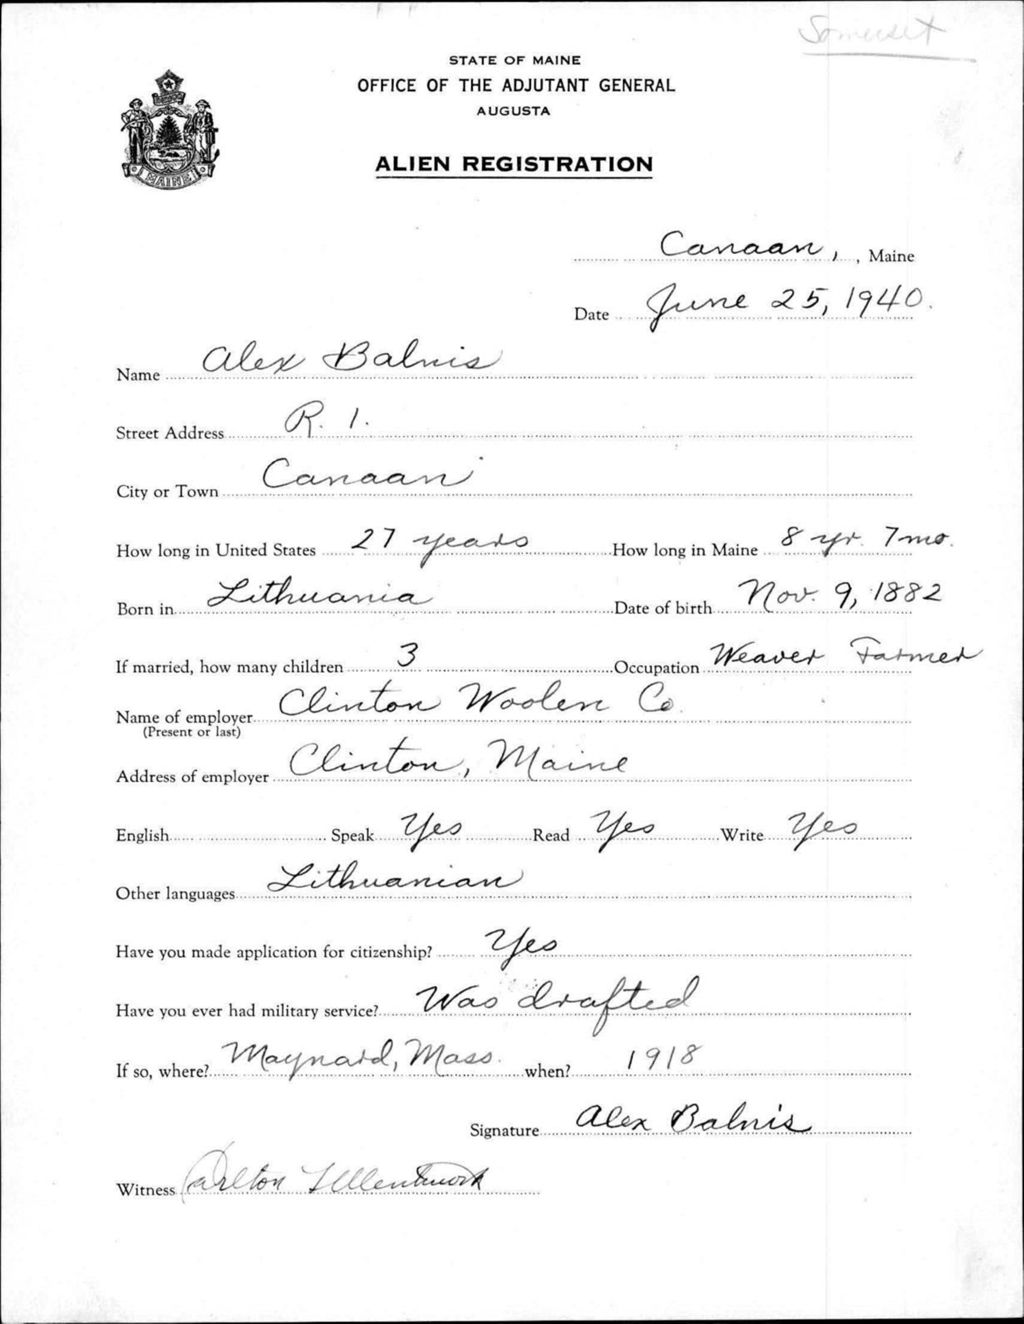 Somerset
STATE OF MAINE
OFFICE OF THE ADJUTANT GENERAL
AUGUSTA
MAINE
ALIEN REGISTRATION
Canaan, , Maine
Date June 25, 1940.
Name Alex Balnis
Street Address R. 1.
City or Town Canaan
How long in United States 27 years How long in Maine 8 yr. 7 mo.
Born in Lithuania Date of birth Nov. 9, 1882
If married, how many children 3 Occupation Weaver Farmer
Name of employer Clinton Woolen Co.
(Present or last)
Address of employer Clinton, Maine
English Speak Yes Read Yes Write Yes
Other languages Lithuanian
Have you made application for citizenship? Yes
Have you ever had military service? Was drafted
If so, where? Maynard, Mass. when? 1918
Signature Alex Balnis
Witness Carlton